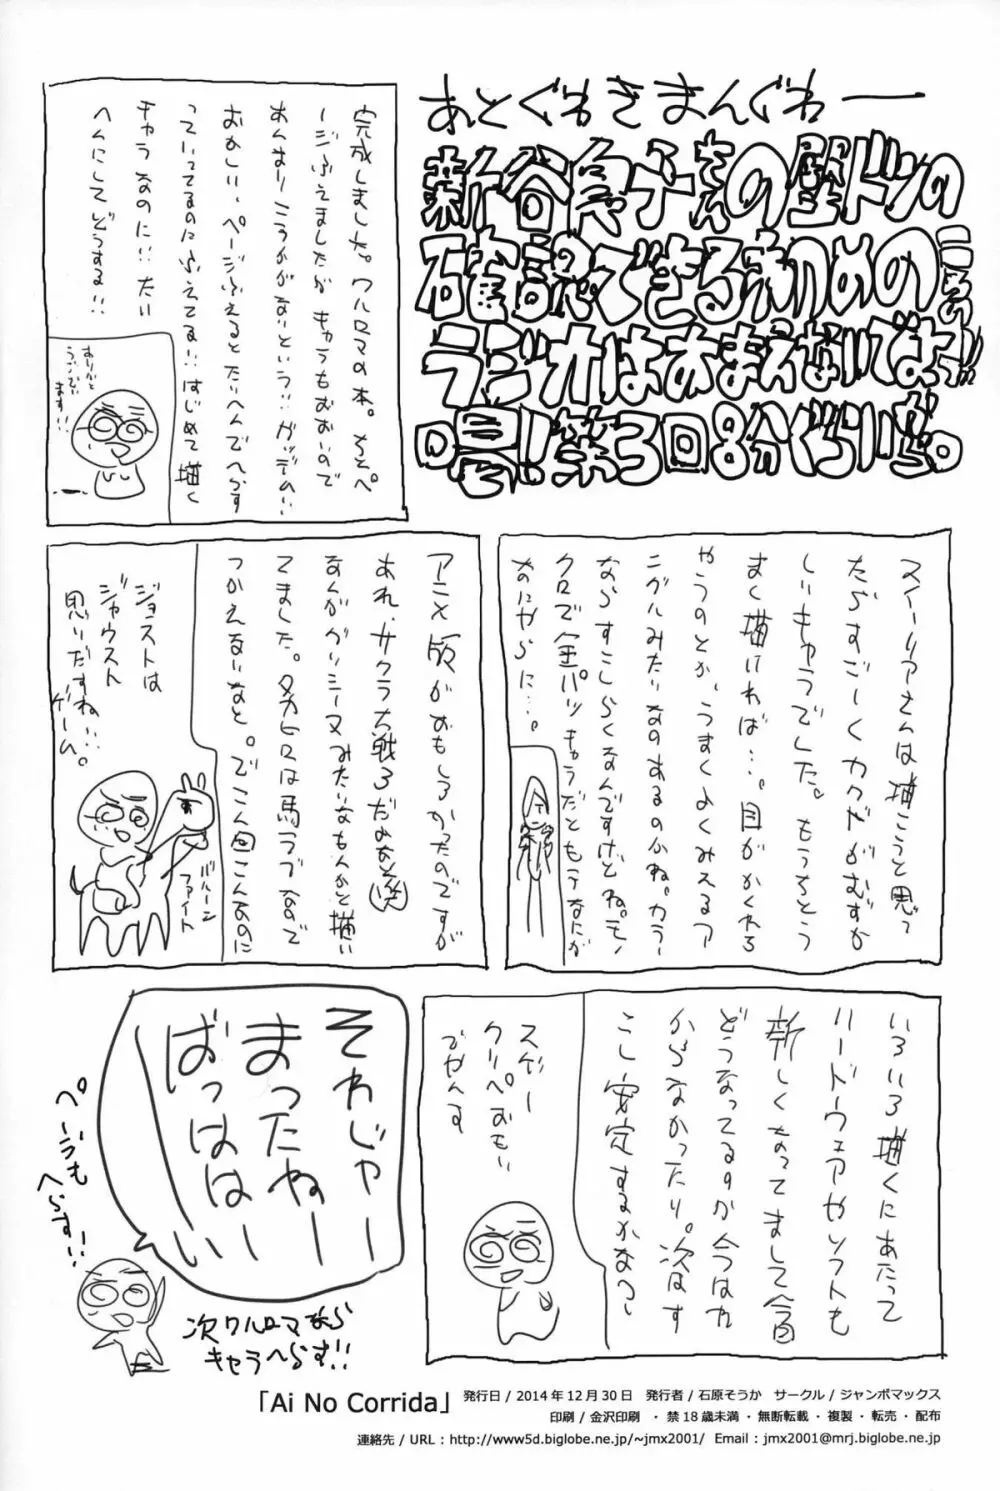 あとぐわきまんぐわー
新谷良子さんの壁ドンの
確認できる初めての
ラジオはおまえないでよっ!!
第3回8分ぐらい
完成しました。ワルロマの本。ちとペ
ージふえましたが キャラもおおいので
あんまりこうかがないという…ガッデム…
おかしい、ページふえるとたいへんでへらす
っていってるのにふえてる!! はじめて描く
キャラなのに!! たい
へんにしてどうする!!
ありがと
うございい
ます!!
スイーリアさんは描こうと思っ
たらすごーくカクドがむずか
しいキャラでした。もうちとう
まく描ければ…。目がかくれろ
やうのとか、うまくよくみえるア
ングルみたいなのあるのかね。カラー
ならすこしらくなんですけどね。モノ
クロで金パツキャラだともうなにが
なにやらに…。
アニメ版がおもしろかったのですが
あれ、サクラ大戦3だよね(笑)
なんかガンシーヌみたいなもんかと描い
てました。タカヒロは馬ラブなので
つかえるいなと。でこん回こんなのに
ジョストは
ジャウスト
思いだすね…
ゲーム。
バルーン
ファイト
いろいろ描くにあたって
ハードウェアやソフトも
新しくなってまして今回
どうなってるすか今はわ
からなかったり。次はす
こし安定するかなっ
スゲー
クリペおもい
でやんす
それじゃー
まったねー
ばっははーい
ページも
へらす!!
次ワルロマなら
キャラへらす!!
「Ai No Corrida」 発行日 / 2014 年 12 月 30 日　発行者 / 石原そうか　サークル / ジャンボマックス
印刷 / 金沢印刷 ・ 禁 18 歳未満 ・ 無断転載 ・ 複製 ・ 転売 ・ 配布
連絡先 / URL : http://www5d.biglobe.ne.jp/~jmx2001/ Email : jmx2001@mrj.biglobe.ne.jp